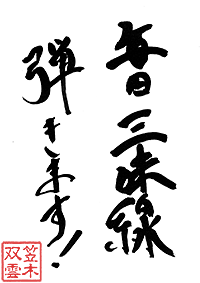 毎日三味線
弾きます!
笠木
双雲